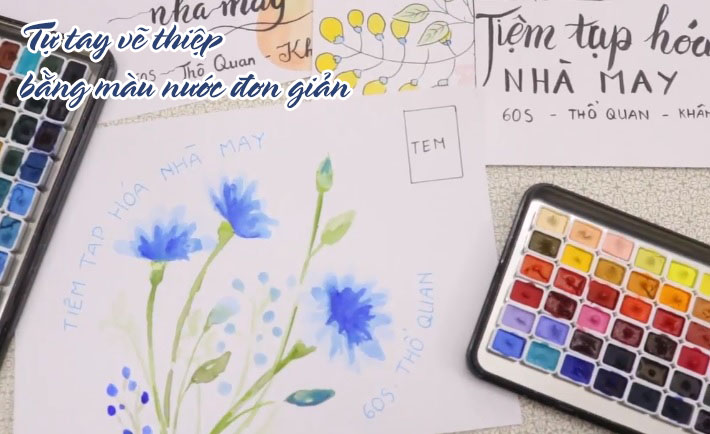 Tự tay vẽ thiệp
bằng màu nước đơn giản
nhà may
Thổ Quan - Kh
Tiệm tạp hóa
NHÀ MAY
60S - THỔ QUAN - KHÂM
TEM
TIỆM TẠP HÓA NHÀ MAY
60S. THỔ QUAN